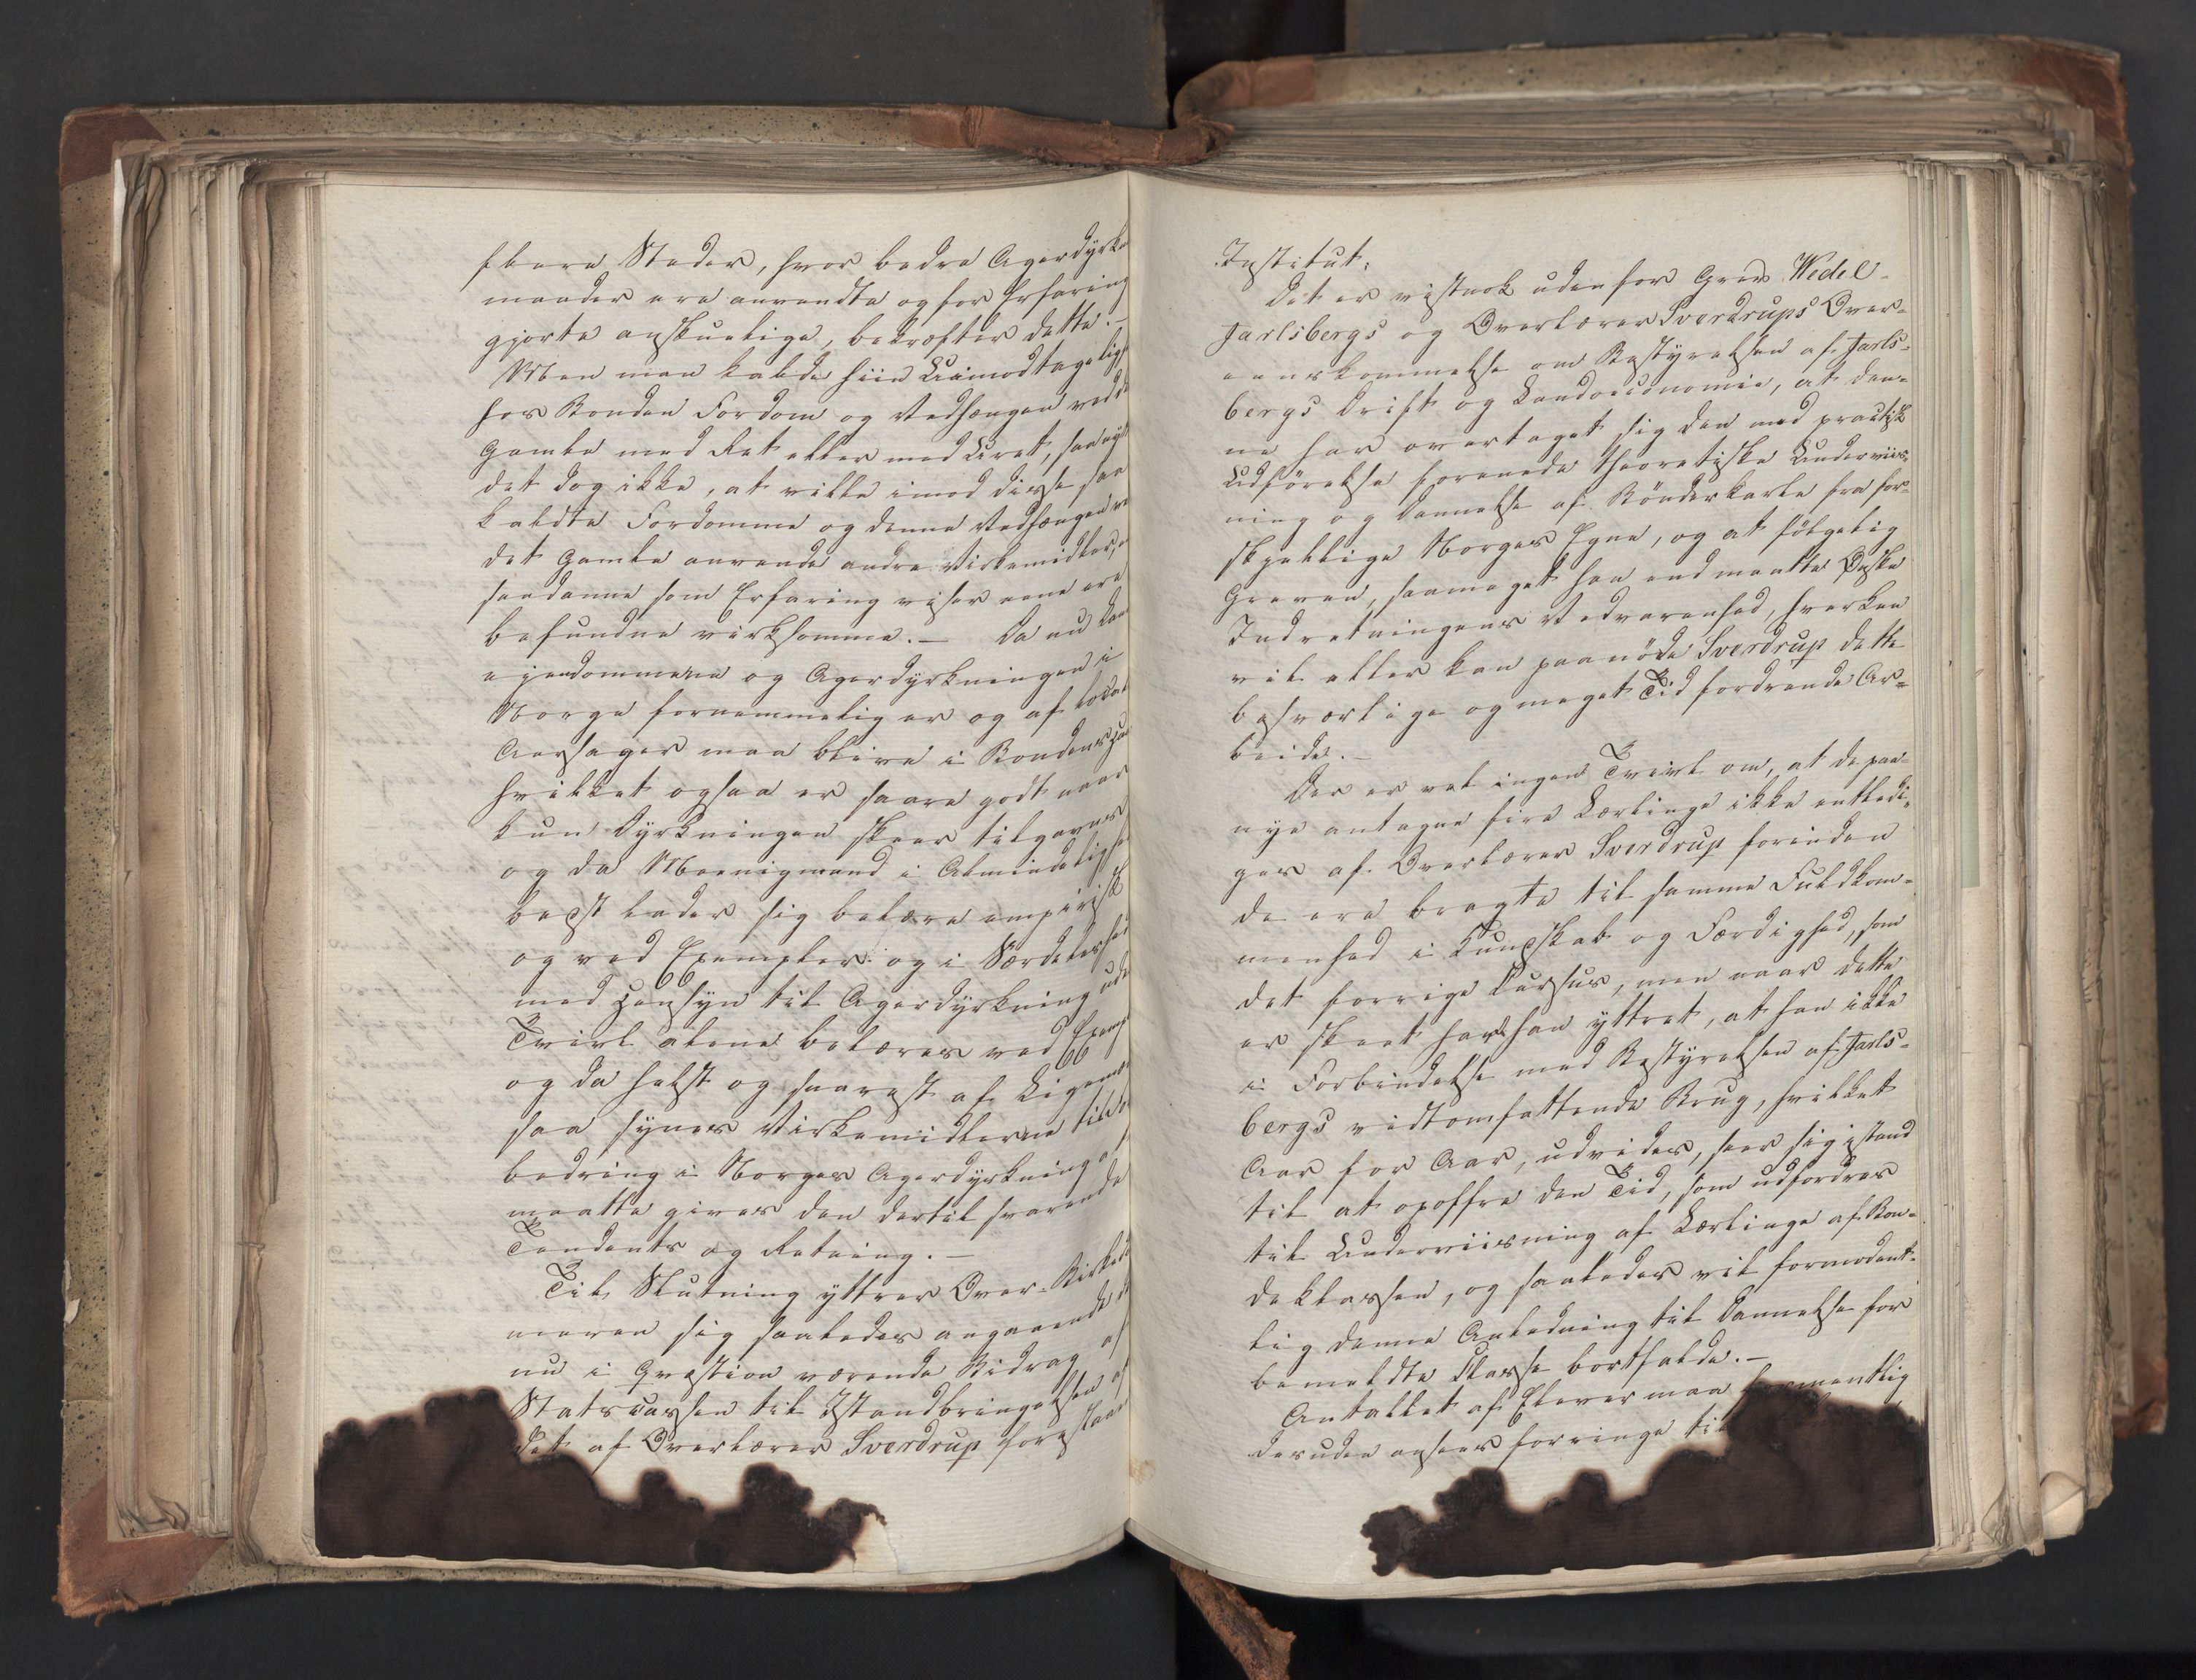 flere Steder, hvor bedre Agerdyrk
maader ere anvendte og for Erfaring
gjorte anskuelige, bekræfter dette. –
Men man kalde hiin Uimodtagelig
hos Bonden Fordom og Vedhængen ved d
Gamle med Ret eller med Uret, saa
det dog ikke, at ville imod disse saa
kaldte Fordomme og denne Vedhængen v
det Gamle anvende andre Virkemidler,
saadanne som Erfaring viser ene ere
befundne virksomme. – Da nu
ejendommene og Agerdyrkningen i
Norge fornemmelig er og af local
Aarsager maa blive i Bondens
hvilket ogsaa er saare godt naar
kun Dyrkningen skeer tilgavns
og da Menigmand i Almindelighe
bedst lader sig belære empirisk
og ved Exempler og i Særdeleshed
med Hensyn til Agerdyrkning uden
Tvivl alene belæres ved Exemp
og da helst og snarest af Ligem
saa synes Virkemidlerne til
bedring i Norges Agerdyrkning at
maatte gives den dertil svarende
Tendents og Retning. –
Til Slutning yttrer Over-Birked
meren sig saaledes angaaende d
nu i Qvæstion værende Bidrag af
Statscassen til Istandbringelsen af
det af Overlærer Sverdrup forestaae
Institut:
Det er vistnok udenfor Grev Wedel
Jarlsbergs og Overlærer Sverdrups Over-
eenskommelse om Bestyrelsen af Jarls-
bergs Drift og Landoeconomie, at den-
ne har overtaget sig den med practisk
Udførelse forenede theoretiske Underviis-
ning og Dannelse af Bønderkarle fra for-
skjellige Norges Egne, og at følgelig
Greven, saameget han end maatte ønske
Indretningens Vedvarenhed, hverken
vil eller kan paanøde Sverdrup dette
besværlige og meget Tid fordrende Ar-
beide. –
Der er vel ingen Tvivl om, at de paa-
nye antagne fire Lærlinge ikke entledi-
ges af Overlærer Sverdrup forinden
de ere bragte til samme Fuldkom-
menhed i Kundskab og Færdighed, som
det forrige Cursus, men naar dette
er skeet har han yttret, at han ikke
i Forbindelse med Bestyrelsen af Jarls-
bergs vidtomfattende Brug, hvilket
Aar for Aar, udvides, seer sig istand
til at opoffre den Tid, som udfordres
til Underviisning af Lærlinge af Bon-
deklassen, og saaledes vil formodent-
lig denne Anledning til Dannelse for
bemeldte Classe bortfalde. –
Antallet af Elever maa
desuden ansees forringe til